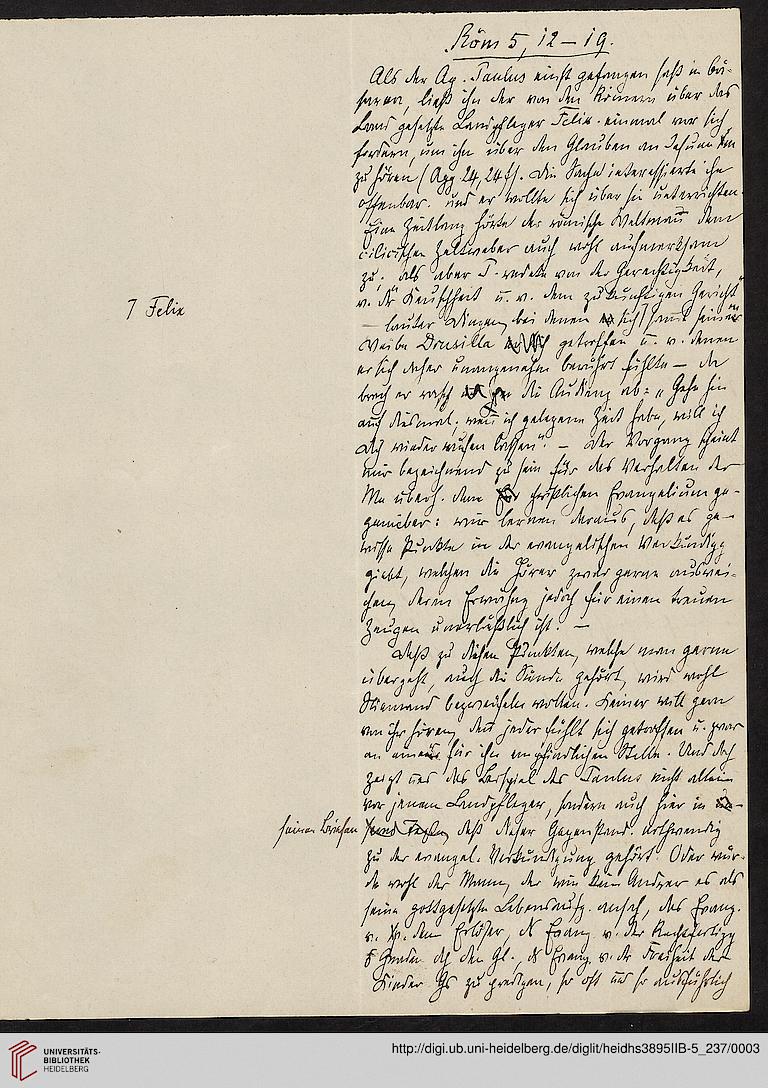 Röm 5, 12–19.
Als der Ap. Paulus einst gefangen saß in Cä-
sarea, ließ ihn der von den Römern über das
Land gesetzte Landpfleger Felix einmal vor sich
fordern, um ihn über den Glauben an Jesum
zu hören (Apg 24, 24 f). Die Sache interessierte ihn
offenbar. und er wollte sich über sie unterrichten.
Eine Zeitlang hörte der römische Weltmann dem
cilicischen Zeltweber auch wohl aufmerksam
zu; als aber P. redete von der Gerechtigkeit,
v. der Keuschheit u. v. dem zukünftigen Gericht
7 Felix
– lauter Dingen, bei denen er sich samt seinem
Weibe Drusilla getroffen u. v. denen
er sich daher unangenehm berührt fühlte – da
brach er rasch die Audienz ab: „Gehe hin
auf diesmal; wenn ich gelegene Zeit habe, will ich
dich wieder rufen lassen". – Der Vorgang scheint
mir bezeichnend zu sein für das Verhalten der
überh. dem christlichen Evangelium ge-
genüber: wir lernen daraus, daß es ge-
wisse Punkte in der evangelischen Verkündigg
giebt, welchen die Hörer zwar gerne auswei-
chen, deren Erwähng jedoch für einen treuen
Zeugen unerläßlich ist. –
Daß zu diesen Punkten, welche man gerne
übergeht, auch die Sünde gehört, wird wohl
Niemand bezweifeln wollen. Keiner will gern
von ihr hören, denn jeder fühlt sich getroffen u. zwar
an einer für ihn empfindlichen Stelle. Und doch
zeigt uns das Beispiel des Paulus nicht allein
vor jenem Landpfleger, sondern auch hier in
seinen Briefen daß dieser Gegenstand notwendig
zu der evangel. Verkündigung gehört. Oder wür-
de wohl der Mann, der wie kein Andrer es als
seine gottgesetzte Lebensaufg. ansah, das Evang.
v. dem Erlöser, d Evang v. der Rechtfertigg
d Sünder dch den Gl., d Evang v. der Freiheit der
Kinder Gs zu predigen, so oft und so ausführlich
UNIVERSITÄTS-
BIBLIOTHEK
HEIDELBERG
http://digi.ub.uni-heidelberg.de/diglit/heidhs3895IIB-5_237/0003